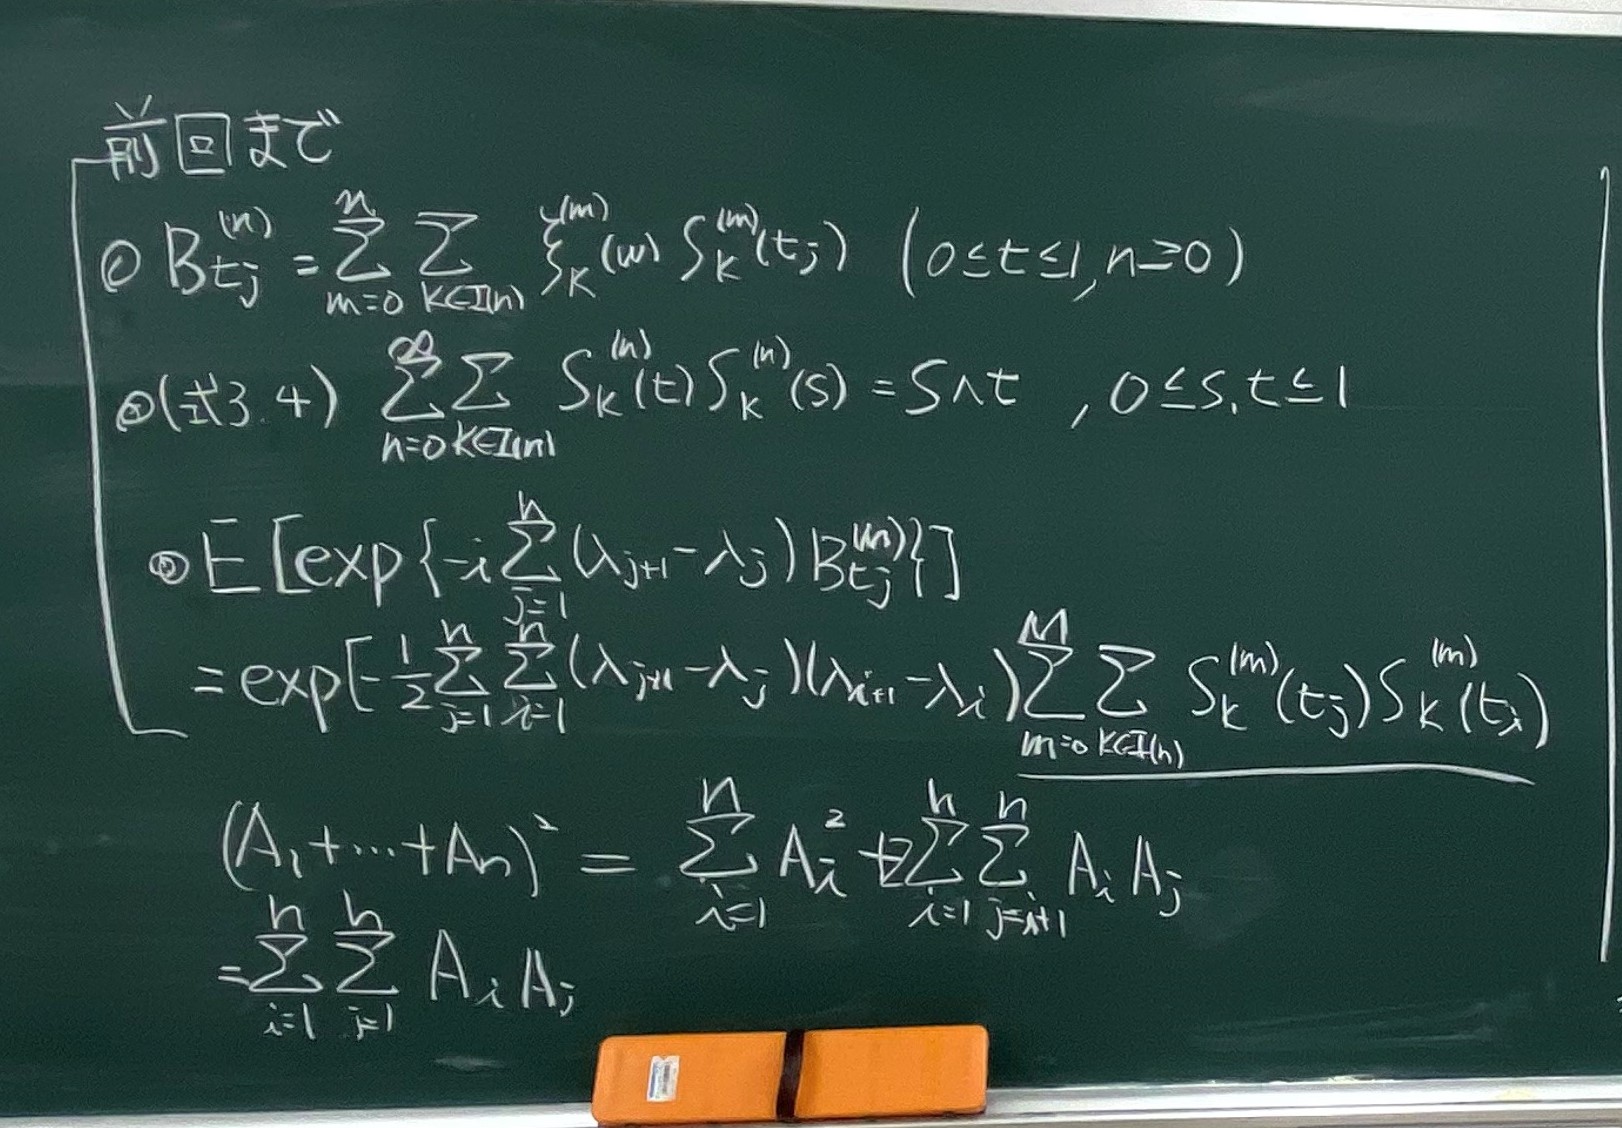 前回まで
◎ B_{tj}^{(n)} = Σ_{m=0}^{n} Σ_{K∈I(n)} ξ_K^{(m)}(ω) S_K^{(m)}(t_j) (0≤t≤1, n≥0)
◎(式3.4) Σ_{n=0}^{∞} Σ_{K∈I(n)} S_K^{(n)}(t) S_K^{(n)}(s) = S∧t , 0≤s,t≤1
◎ E[exp{-i Σ_{j=1}^{n} (λ_{j+1}-λ_j) B_{tj}^{(m)}}]
= exp[-1/2 Σ_{j=1}^{n} Σ_{i=1}^{n} (λ_{j+1}-λ_j)(λ_{i+1}-λ_i) Σ_{m=0}^{M} Σ_{K∈I(n)} S_K^{(m)}(t_j) S_K^{(m)}(t_i))
(A_1+…+A_n)^2 = Σ_{i=1}^{n} A_i^2 + 2Σ_{i=1}^{n} Σ_{j=i+1}^{n} A_i A_j
= Σ_{i=1}^{n} Σ_{j=1}^{n} A_i A_j